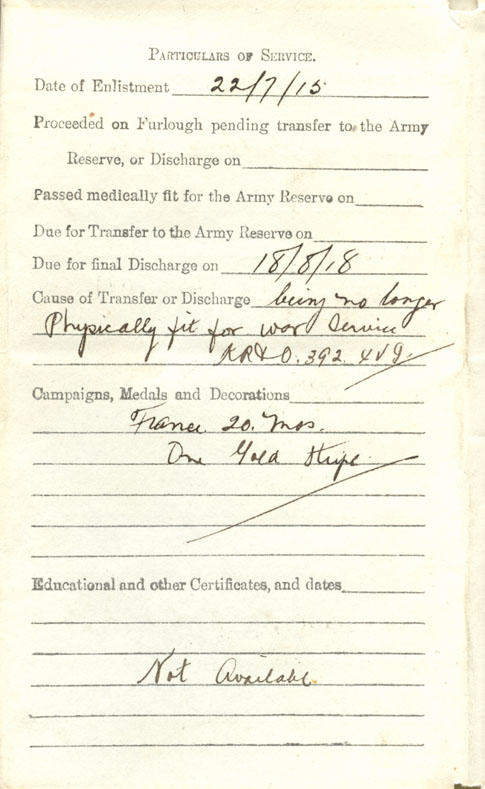 PARTICULARS OF SERVICE.
Date of Enlistment 22/7/15
Proceeded on Furlough pending transfer to the Army
Reserve, or Discharge on
Passed medically fit for the Army Reserve on
Due for Transfer to the Army Reserve on
Due for final Discharge on 18/8/18
Cause of Transfer or Discharge being no longer
Physically fit for war service
KR & O. 392.
Campaigns, Medals and Decorations
France 20. Mos.
One Gold Stripe
Educational and other Certificates, and dates
Not Available